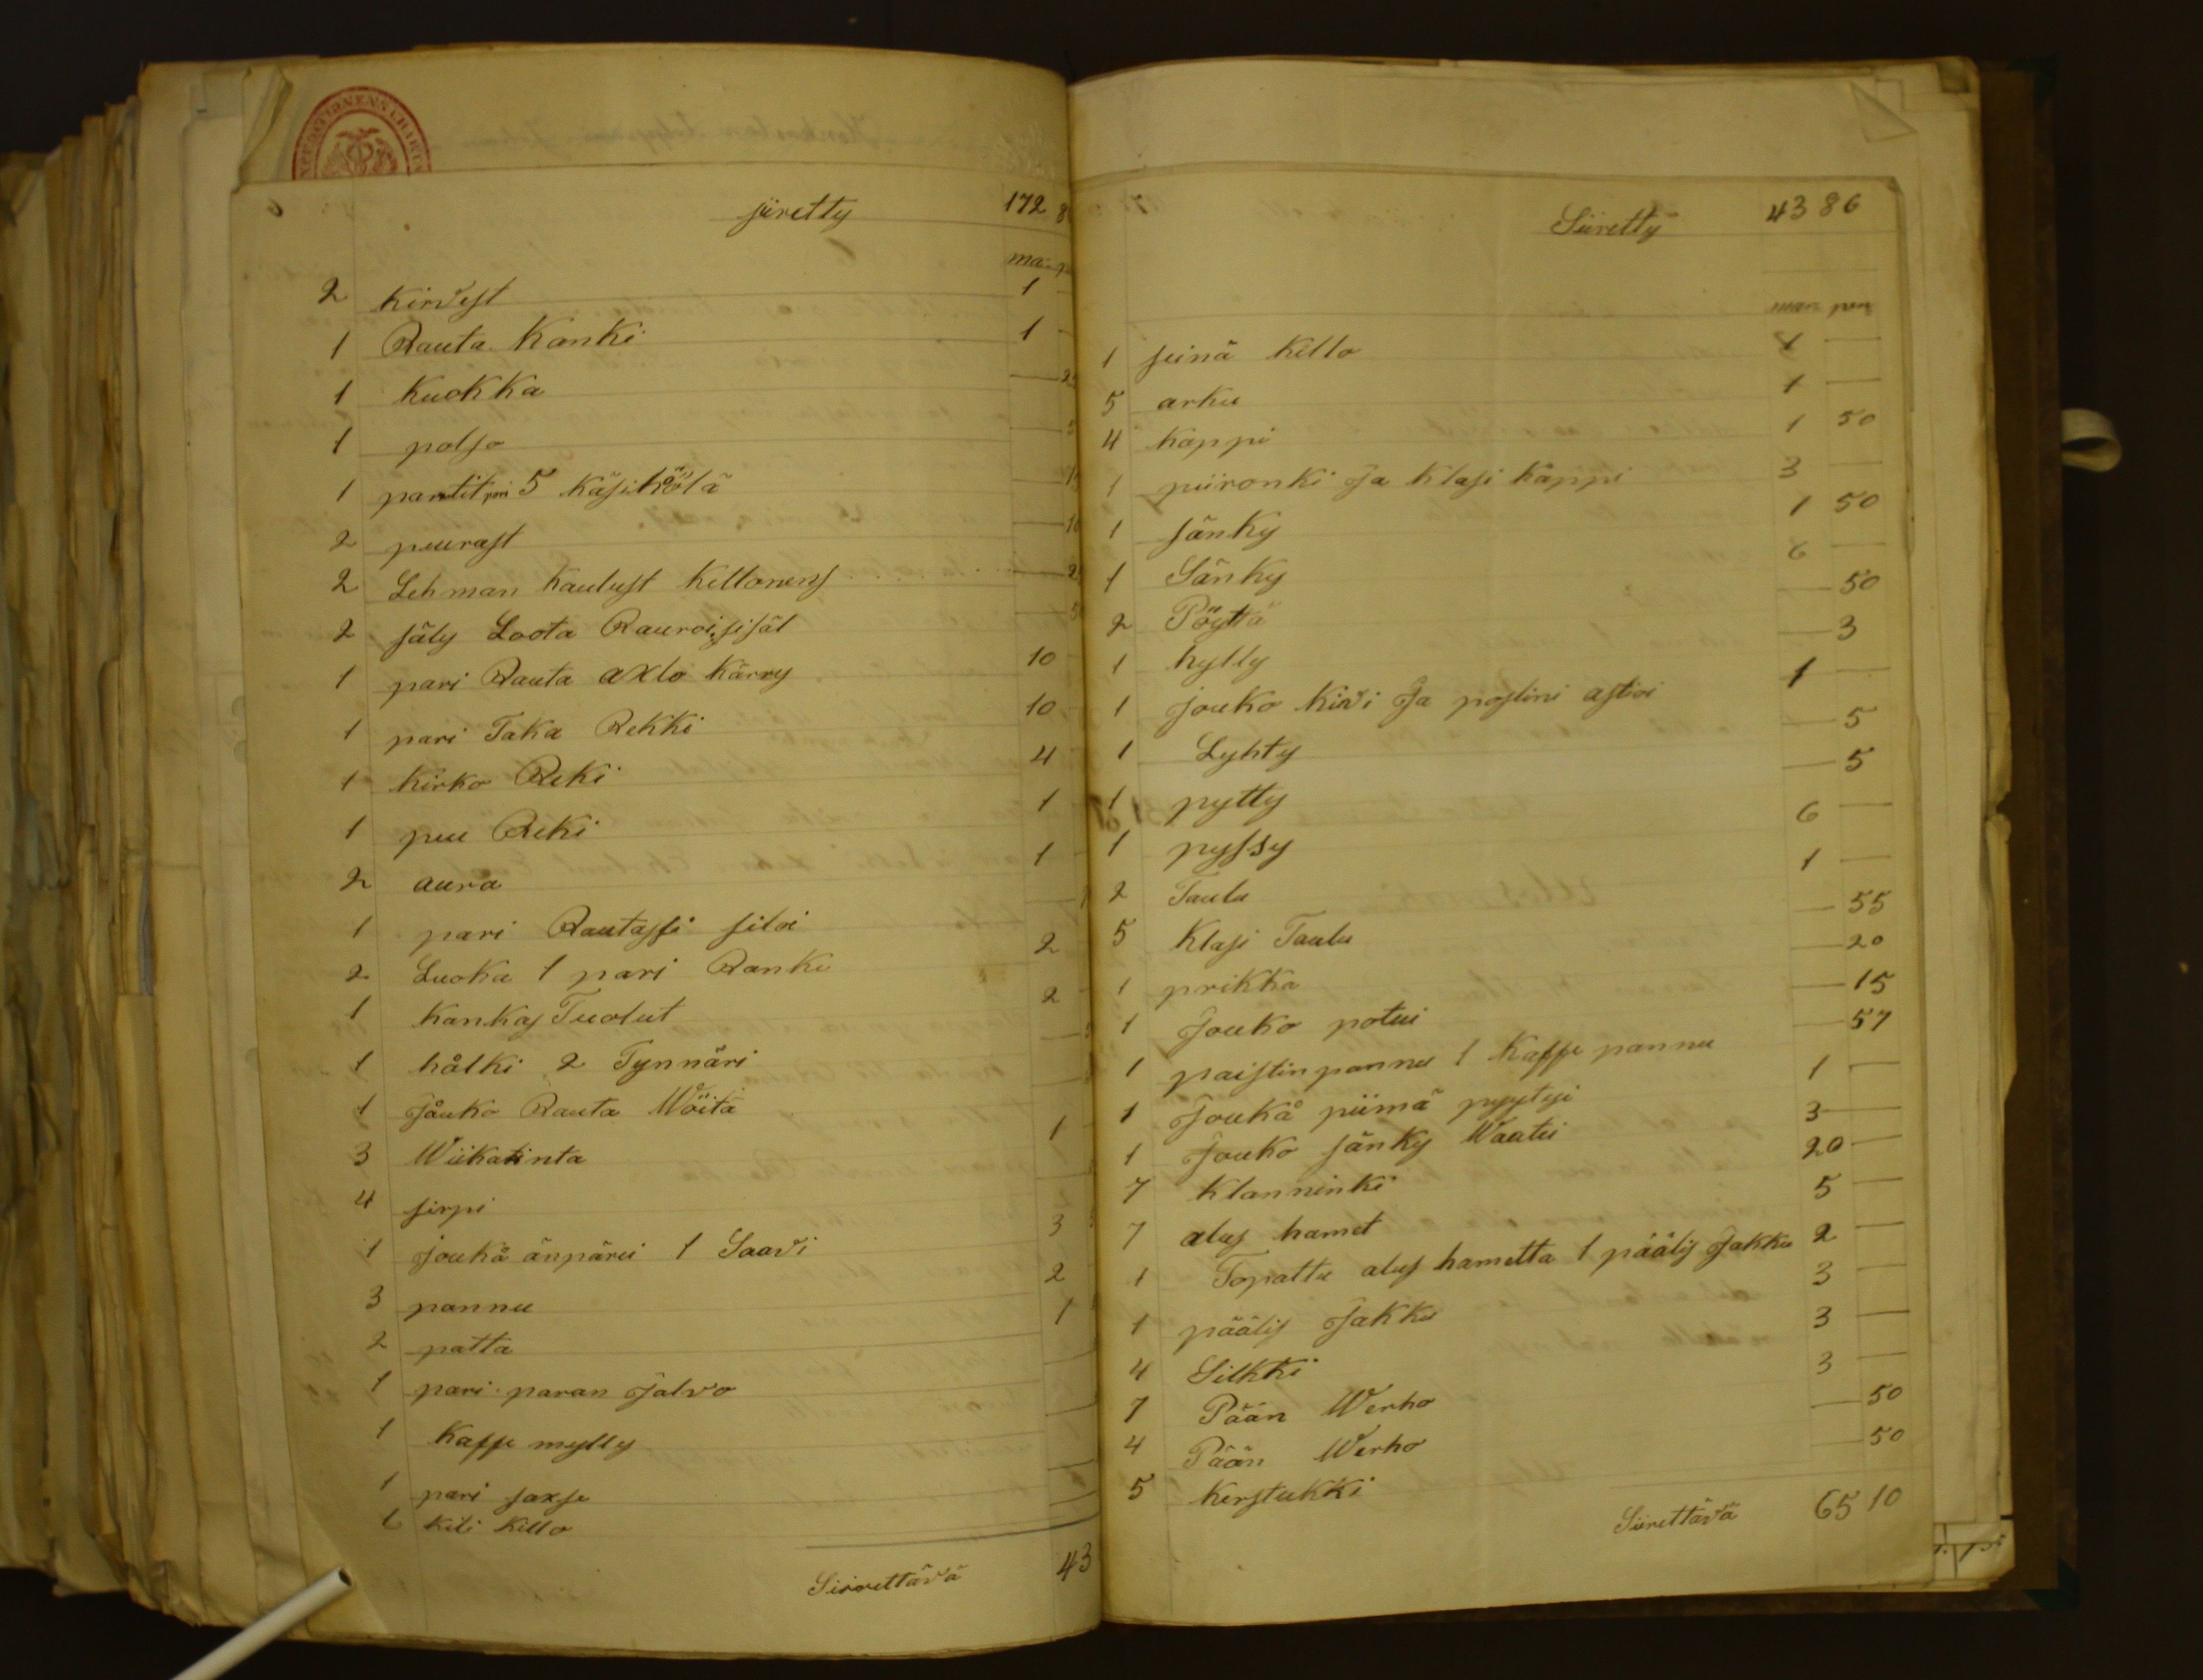 siretty 172 8
ma p
2 kirvest 1
1 Rauta Kanki 1
1 Kuokka 2
1 polso 5
1 pantit pari 5 käsi köلä 1
2 peurast 10
2 Lehman Kaulust kellonens 2
2 säly Loota Rauroi sisäl 5
1 pari Rauta axlo kärry 10
1 pari Taka Rekki 10
1 kirko Reki 4
1 puu Reki 1
2 aura 1
1 pari Rautassi siloi
2 Luoka 1 pari Ranki 2
1 kankas Tuolut 2
1 hålki 2 Tynnäri
1 Jåuko Rauta Wöitä
3 Wiikatinta 1
4 sirpi
1 Joukå änpärii 1 Saavi 3
3 pannu 2
2 patta 1
1 pari paran Jalvo
1 Kaffe mylly
1 pari saxse
1 kili killo
Siirrettävä 43
Siiretty 43 86
mar pen
1 seinä kello 1
5 arku 1
4 kappi 1 50
1 piironki Ja klasi kåppi 3
1 sänky 1 50
1 Sänky 6
2 Pöyttä 50
1 hylly 3
1 Jouko kivi Ja poslini astioi 1
1 Lyhty 5
1 pytty 5
1 pyssy 6
2 Taulu 1
5 Klasi Taulu 55
1 prikka 20
1 Jouko potui 15
1 paistinpannu 1 Kaffe pannu 57
1 Joukå piimä pyytyi 1
1 Jouko sänky Waatei 3
7 klanninki 20
7 alus hamet 5
1 Topattu alus hametta 1 päälis Jakku 2
1 päälis Jakku 3
4 Silkki 3
7 Pään Werho 3
4 Pään Werho 50
5 kerstukki 50
Siirettävä 65 10